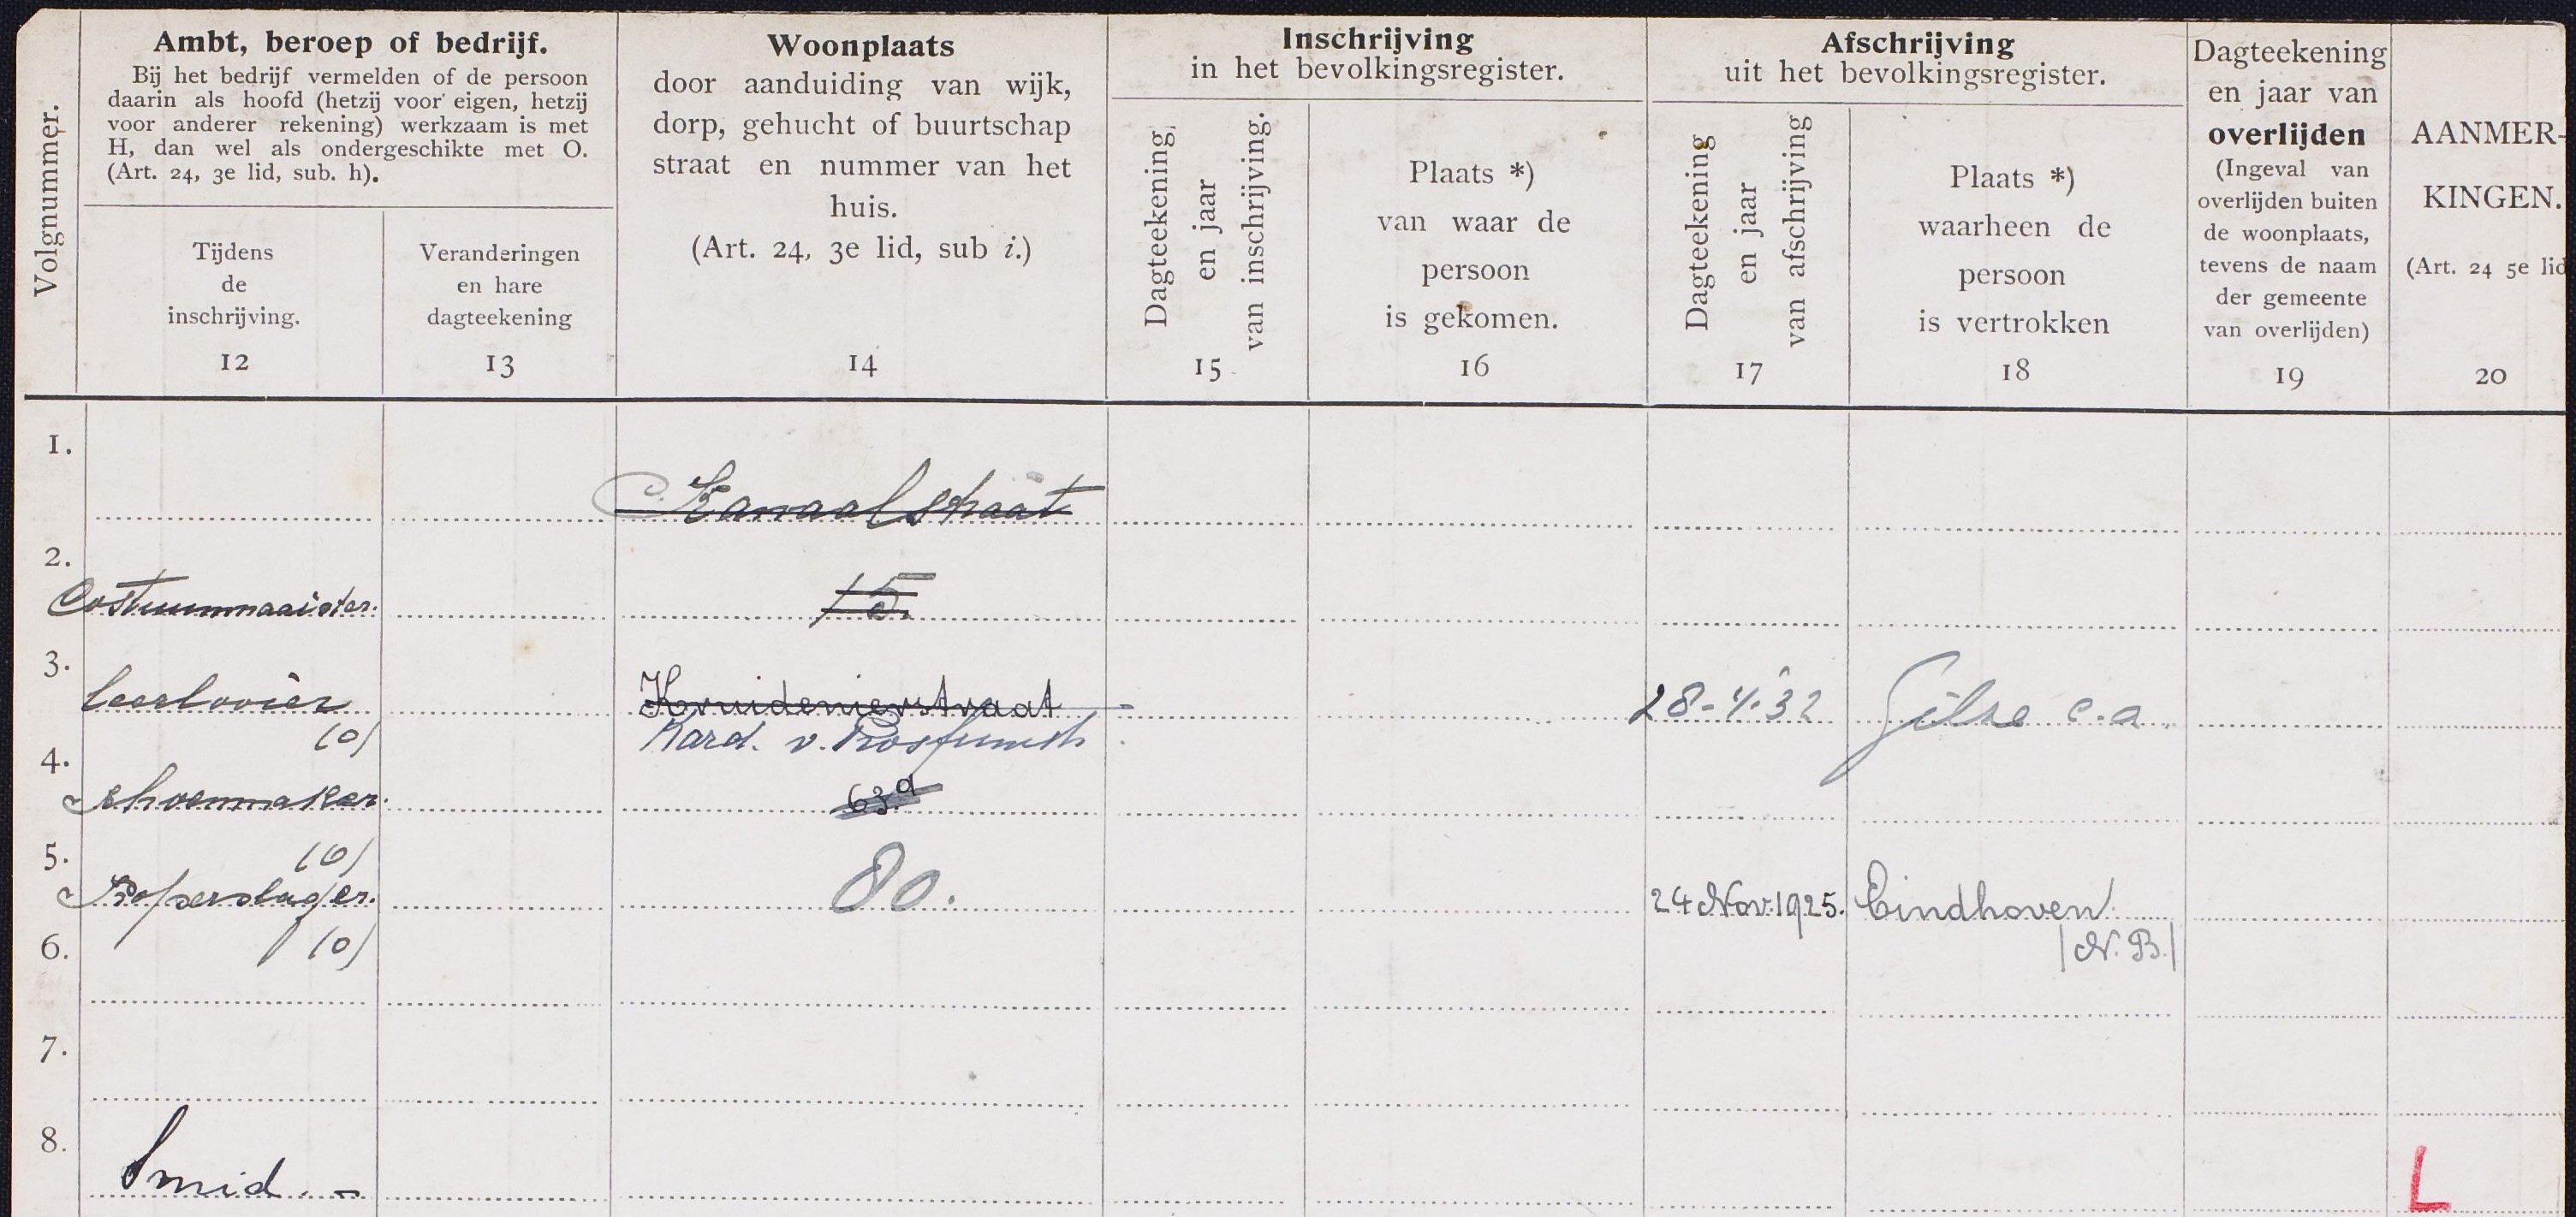 Volgnummer.
Ambt, beroep of bedrijf.
Bij het bedrijf vermelden of de persoon
daarin als hoofd (hetzij voor eigen, hetzij
voor anderer rekening) werkzaam is met
H, dan wel als ondergeschikte met O.
(Art. 24, 3e lid, sub. h).
Tijdens
de
inschrijving.
12
Veranderingen
en hare
dagteekening
13
Woonplaats
door aanduiding van wijk,
dorp, gehucht of buurtschap
straat en nummer van het
huis.
(Art. 24, 3e lid, sub i.)
14
Inschrijving
in het bevolkingsregister.
Dagteekening
en jaar
van inschrijving.
15
Plaats *)
van waar de
persoon
is gekomen.
16
Afschrijving
uit het bevolkingsregister.
Dagteekening
en jaar
van afschrijving
17
Plaats *)
waarheen de
persoon
is vertrokken
18
Dagteekening
en jaar van
overlijden
(Ingeval van
overlijden buiten
de woonplaats,
tevens de naam
der gemeente
van overlijden)
19
AANMER-
KINGEN.
(Art. 24 5e lid
20
1.
Kanaalstraat
2.
Costuumnaaister. 15.
3.
leerlooier Kruidenierstraat 28-4-32 Gilze e.a.
(o) Kard. v. Rossumstr
4.
schoenmaker. 63a
5. (o)
Koperslager. 80. 24 Nov. 1925. Eindhoven
6. (o) (N.B.)
7.
8.
Smid. -
L